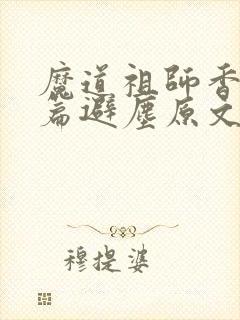 魔道祖師香
篇避塵原文
穆提婆